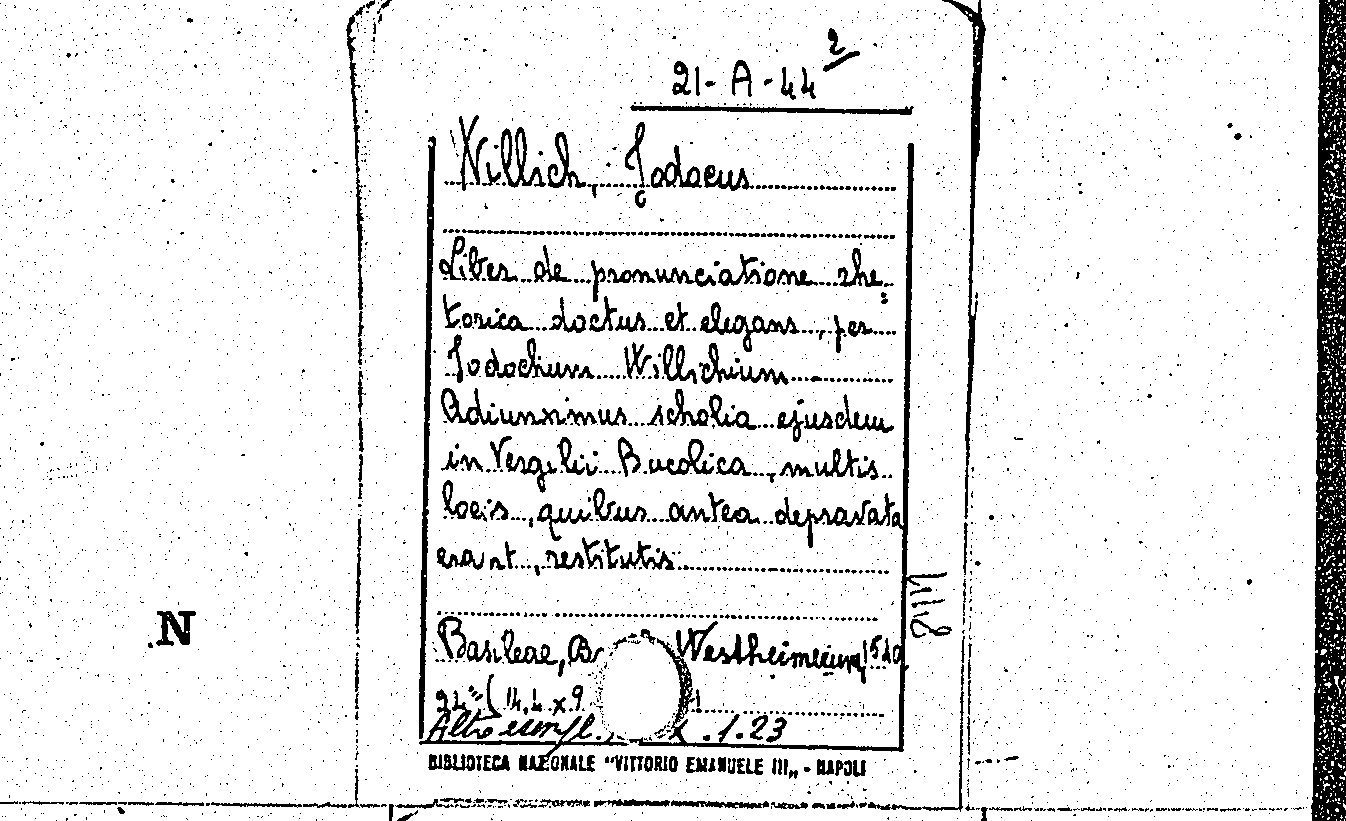 21-A-44 2
Willich, Jodocus
Liber de pronunciatione rhe=
torica doctus et elegans, per
Jodochum Willichium
Adiunximus scholia ejusdem
in Vergilii Bucolica, multis
locis, quibus antea depravata
erant, restitutis
N
Basileae, B Westheimerum, 15
14.4 x 9
Altro esempl. 1.23
BIBLIOTECA NAZIONALE "VITTORIO EMANUELE III„ - NAPOLI